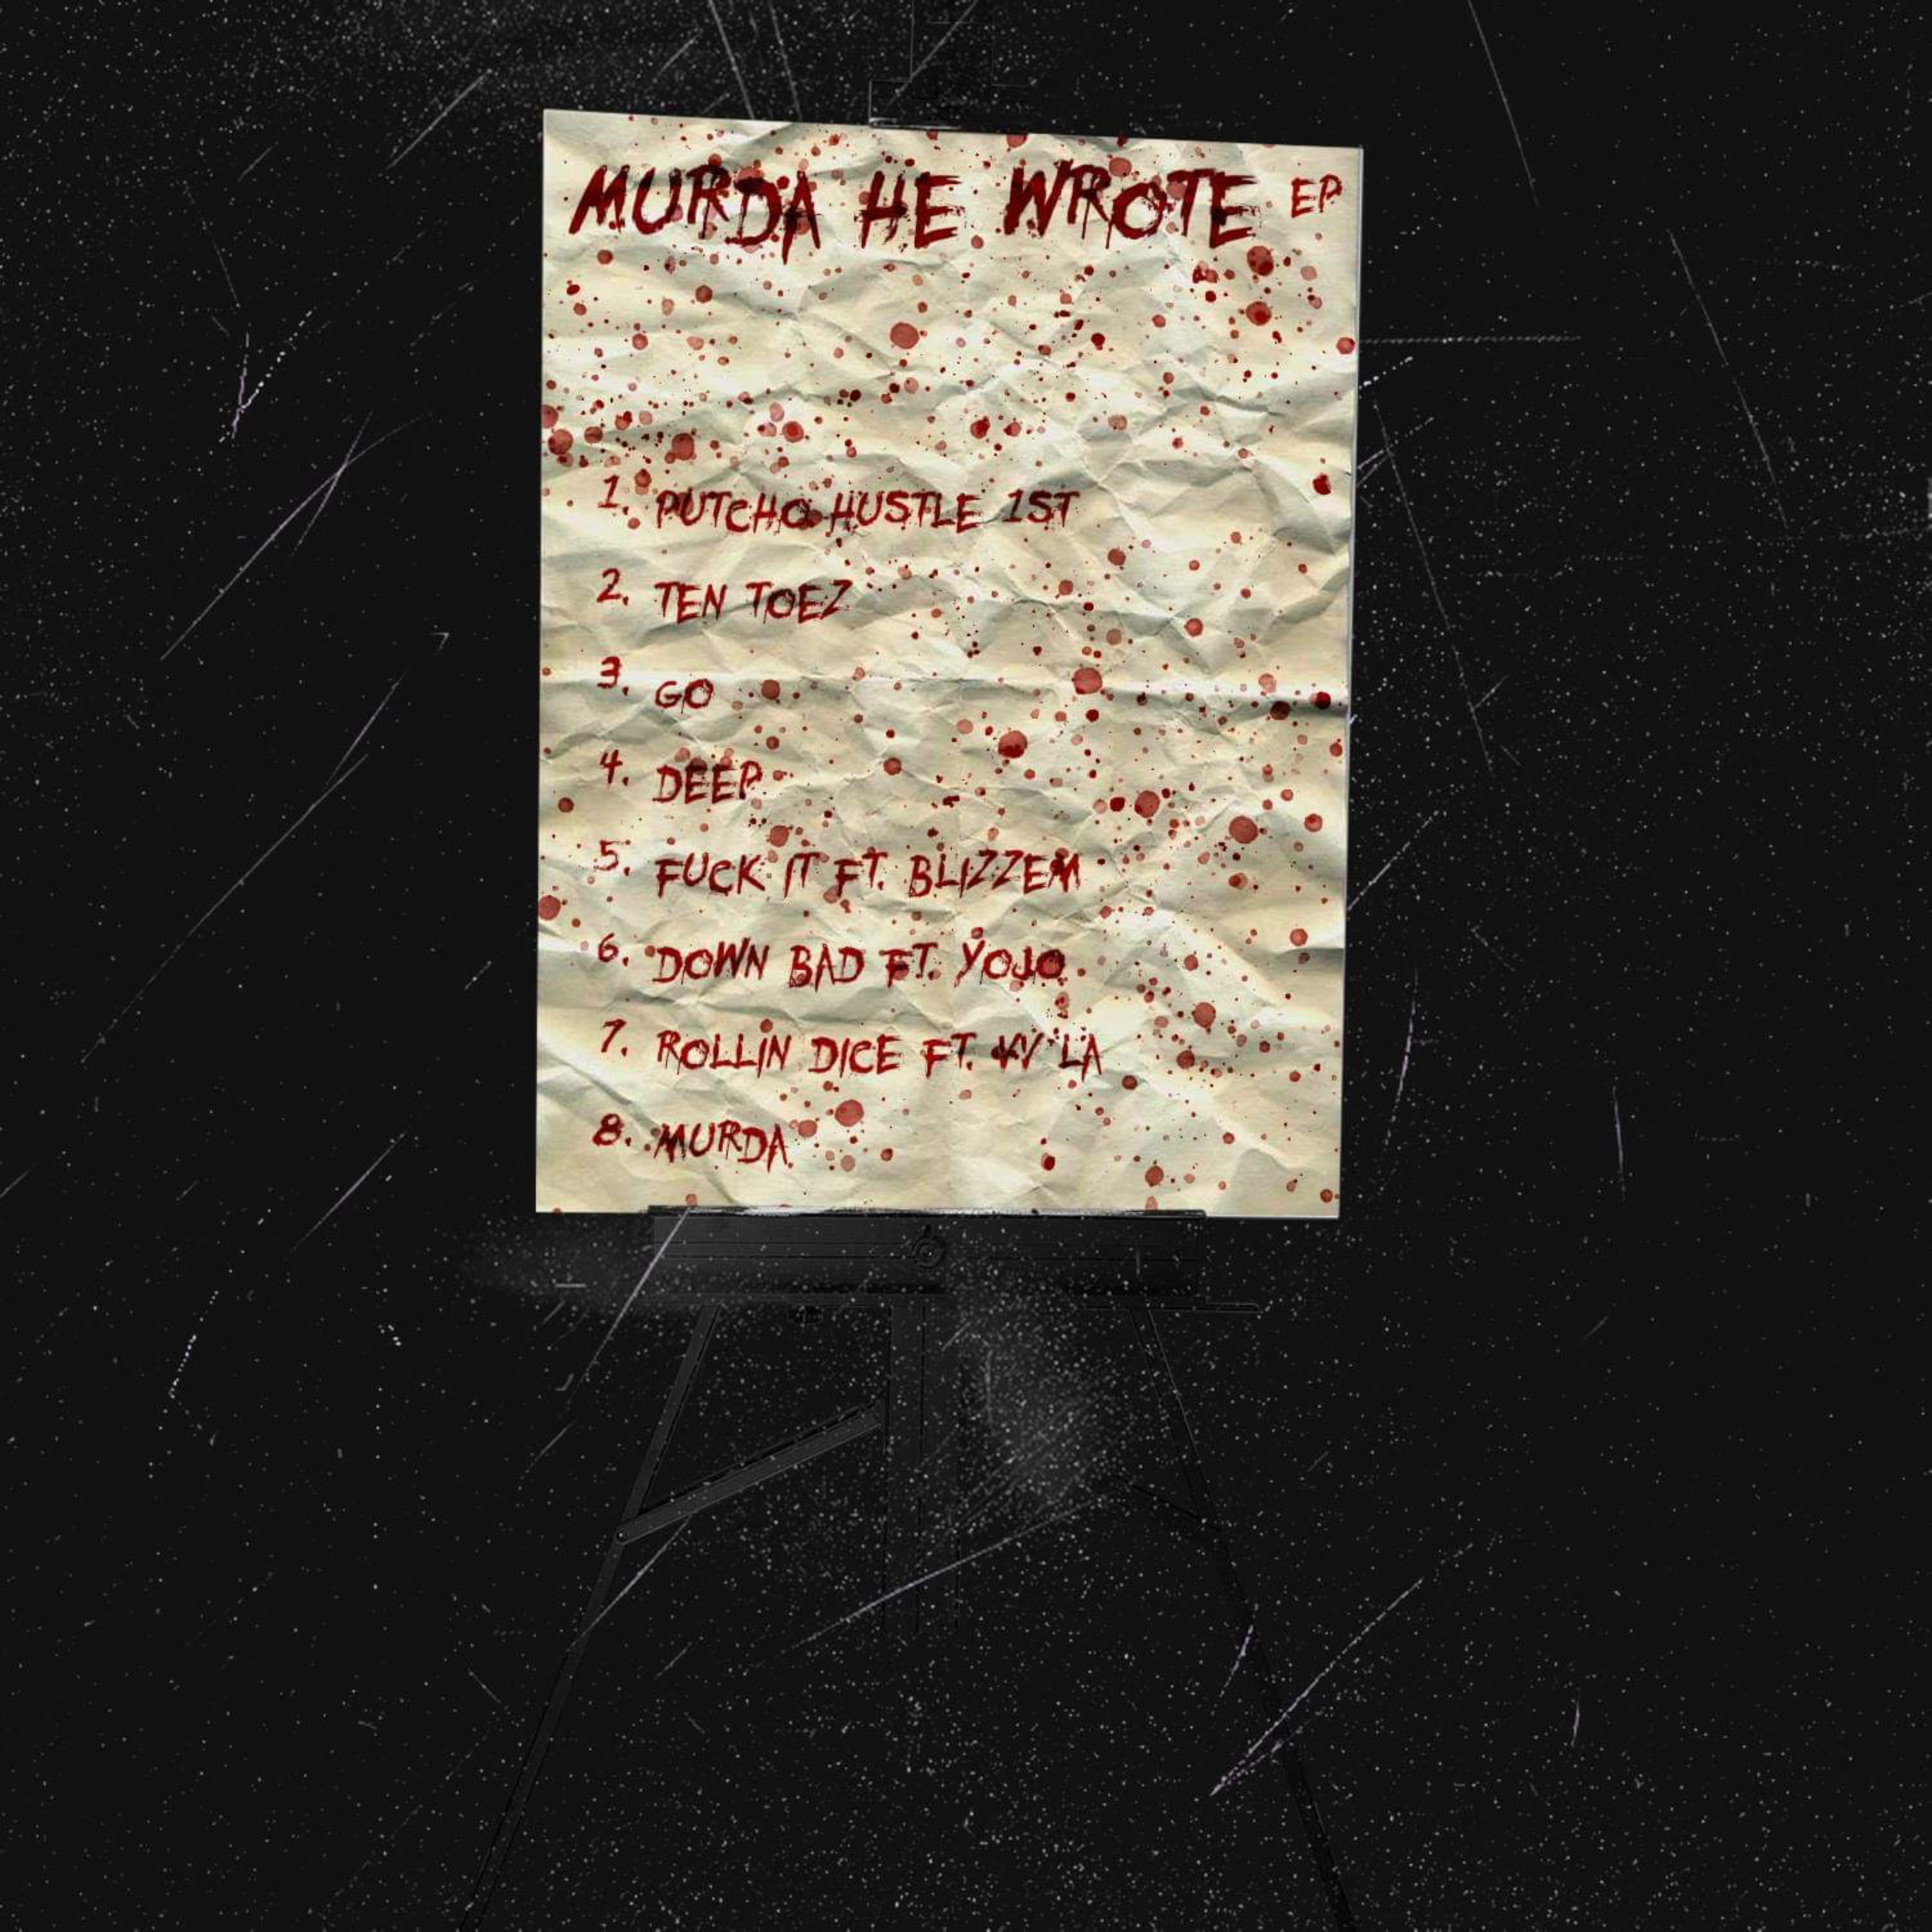 MURDA HE WROTE EP
1. PUTCHO HUSTLE 1ST
2. TEN TOEZ
3. GO
4. DEEP
5. FUCK IT FT. BLIZZEM
6. DOWN BAD FT. YOJO
7. ROLLIN DICE FT. VV LA
8. MURDA